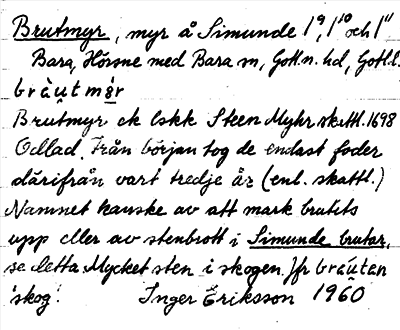 Brutmyr, myr å Simunde 1⁹, 1¹⁰ och 1¹¹
Bara, Hörsne med Bara sn, Gotl.n. hd, Gotl.l.
Brutmyr ek lskk Steen Myhr skattl. 1698
Odlad. Från början tog de endast foder
därifrån vart tredje år (enl. skattl.)
Namnet kanske av att mark brutits
upp eller av stenbrott i Simunde brutar,
se detta. Mycket sten i skogen. Jfr bráutan
'skog'. Inger Eriksson 1960